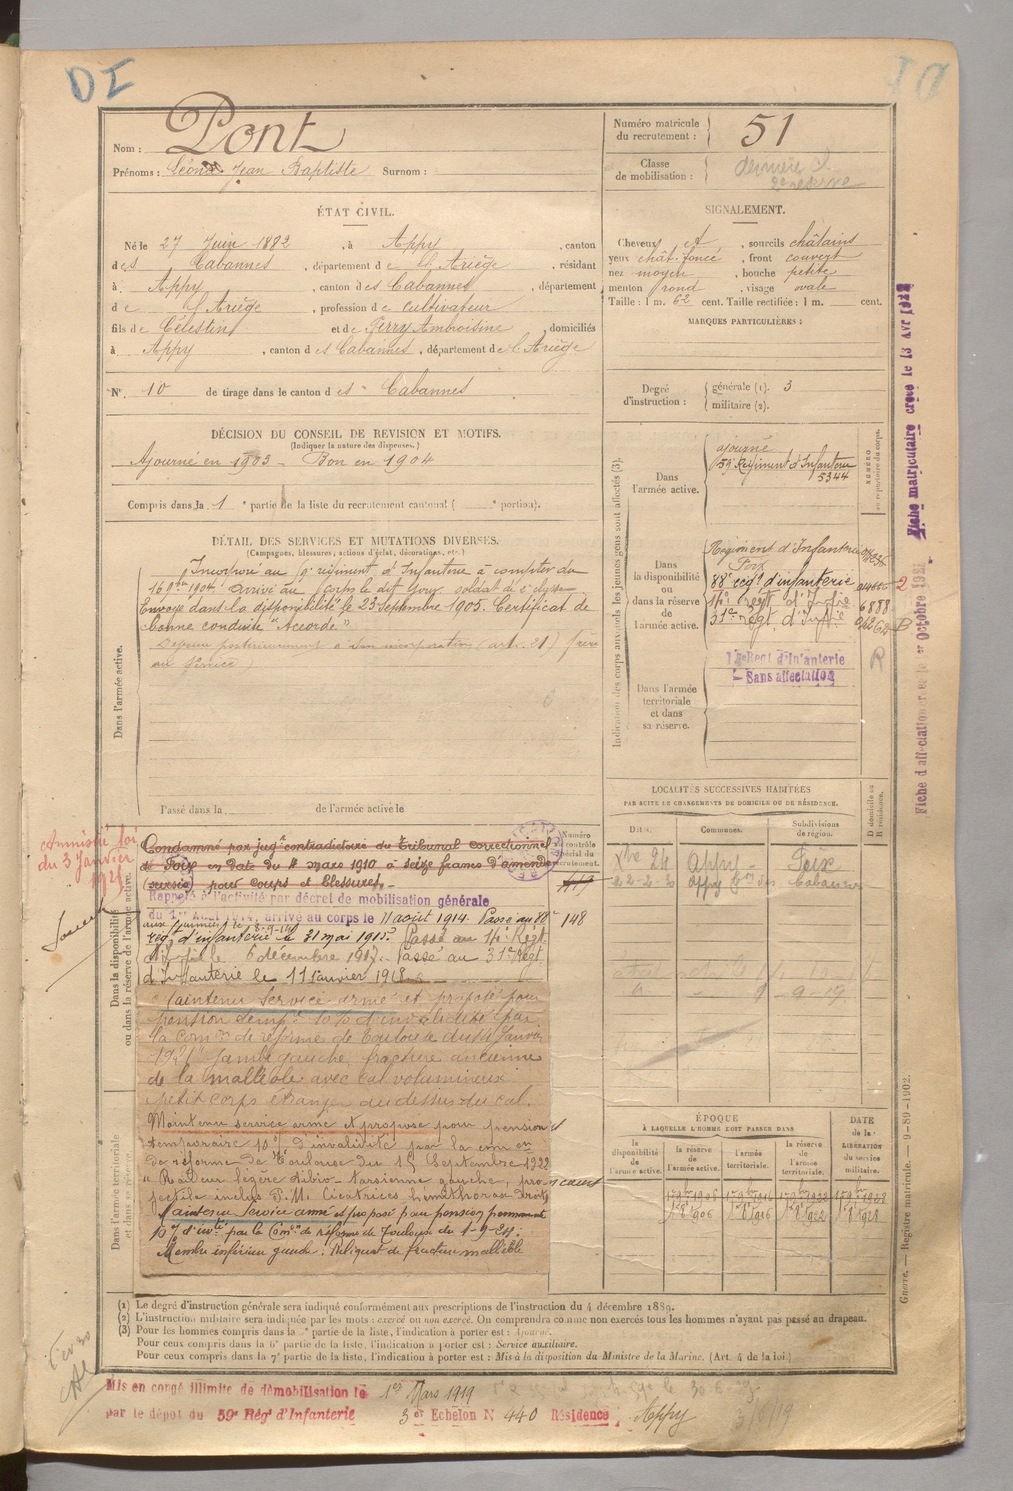 DI
Nom : Pont
Prénoms : Jean Baptiste Surnom :
Numéro matricule du recrutement : 51
Classe de mobilisation :
ÉTAT CIVIL.
Né le 27 Juin 1882, à Appy, canton
des Cabannes, département de l'Ariège, résidant
à Appy, canton des Cabannes, département
de l'Ariège, profession de cultivateur
fils de Célestin et de Perry Ambroisine, domiciliés
à Appy, canton des Cabannes, département de l'Ariège
N° 10 de tirage dans le canton des Cabannes
SIGNALEMENT.
Cheveux et, sourcils châtains
yeux chât. foncé, front couvert
nez moyen, bouche petite
menton rond, visage ovale
Taille : 1 m. 62 cent. Taille rectifiée : 1 m. cent.
MARQUES PARTICULIÈRES :
Degré d'instruction : générale (1). 3
militaire (2).
DÉCISION DU CONSEIL DE REVISION ET MOTIFS.
(Indiquer la nature des dispenses.)
Ajourné en 1903 - Bon en 1904
Compris dans la 1e partie de la liste du recrutement cantonal ( e portion).
DÉTAIL DES SERVICES ET MUTATIONS DIVERSES.
(Campagnes, blessures, actions d'éclat, décorations, etc.)
Dans l'armée active.
Incorporé au régiment d'Infanterie à compter du
1904. Arrivé au corps le dit jour soldat de 2e classe
Envoyé dans la disponibilité le 23 Septembre 1905. Certificat de
bonne conduite "Accordé"
Dispensé postérieurement à son incorporation (art. 21) (frère
au service)
Passé dans la de l'armée active le
Indication des corps auxquels les jeunes gens sont affectés (3).
Dans l'armée active.
ajourné
59e Régiment d'Infanterie
5344
NUMÉRO au répertoire du corps.
Dans la disponibilité ou dans la réserve de l'armée active.
Régiment d'Infanterie
Foix
88e regt d'infanterie
14e Regt d'Inftie 6888
31e regt d'Inftie
Dans l'armée territoriale et dans sa réserve.
Regt d'Infanterie
Sans affectation
R
Fiche matriculaire créée le 13 AVR
Fiche d'affectation Octobre
LOCALITÉS SUCCESSIVES HABITÉES
PAR SUITE DE CHANGEMENTS DE DOMICILE OU DE RÉSIDENCE.
Dates. Communes. Subdivisions de région. D domicile ou R résidence.
Appy Foix
Appy Cabannes
Amnistié loi
du 3 Janvier
1925
Dans la disponibilité ou dans la réserve de l'armée active.
Condamné par jugt contradictoire du Tribunal correctionnel
de Foix en date du 11 mars 1910 à seize francs d'amende
(sursis) pour coups et blessures.
Numéro au contrôle spécial du recrutement.
Rappelé à l'activité par décret de mobilisation générale
du 1er Août 1914, arrivé au corps le 11 août 1914. Passé au 88e 148
regt d'infanterie le 31 mai 1915. Passé au 14e Régt
d'Inftie le 6 décembre 1917. Passé au 31e Régt
d'Infanterie le 11 janvier 1918.
Maintenu Service armé et proposé pour
pension temp. 10% d'invalidité par
la comon de réforme de Toulouse du 14 Janvier
1921 "Jambe gauche, fracture ancienne
de la malléole avec cal volumineux
petit corps étranger au dessus du cal.
Dans l'armée territoriale et dans sa réserve.
Maintenu service armé et proposé pour pension
temporaire 10% d'invalidité par la comon
de réforme de Toulouse du 15 Septembre 1922
"Raideur légère tibio-tarsienne gauche, pro-
jectile inclus P.M. Cicatrices hémithorax droit
Maintenu Service armé et proposé pour pension permanente
10% d'invté par la Comon de réforme de Toulouse du 1-9-24 :
Membre inférieur gauche : Reliquat de fracture malléole
ÉPOQUE
À LAQUELLE L'HOMME DOIT PASSER DANS
la disponibilité de l'armée active.
la réserve de l'armée active.
l'armée territoriale.
la réserve de l'armée territoriale.
DATE de la LIBÉRATION du service militaire.
Guerre. — Registre matricule. — 9-89-1902.
(1) Le degré d'instruction générale sera indiqué conformément aux prescriptions de l'instruction du 4 décembre 1889.
(2) L'instruction militaire sera indiquée par les mots : exercé ou non exercé. On comprendra comme non exercés tous les hommes n'ayant pas passé au drapeau.
(3) Pour les hommes compris dans la partie de la liste, l'indication à porter est : Ajourné.
Pour ceux compris dans la 6e partie de la liste, l'indication à porter est : Service auxiliaire.
Pour ceux compris dans la 7e partie de la liste, l'indication à porter est : Mis à la disposition du Ministre de la Marine. (Art. 4 de la loi.)
Mis en congé illimité de démobilisation le 1er Mars 1919
par le dépôt du 59e Régt d'Infanterie 3er Echelon N° 440 Résidence Appy